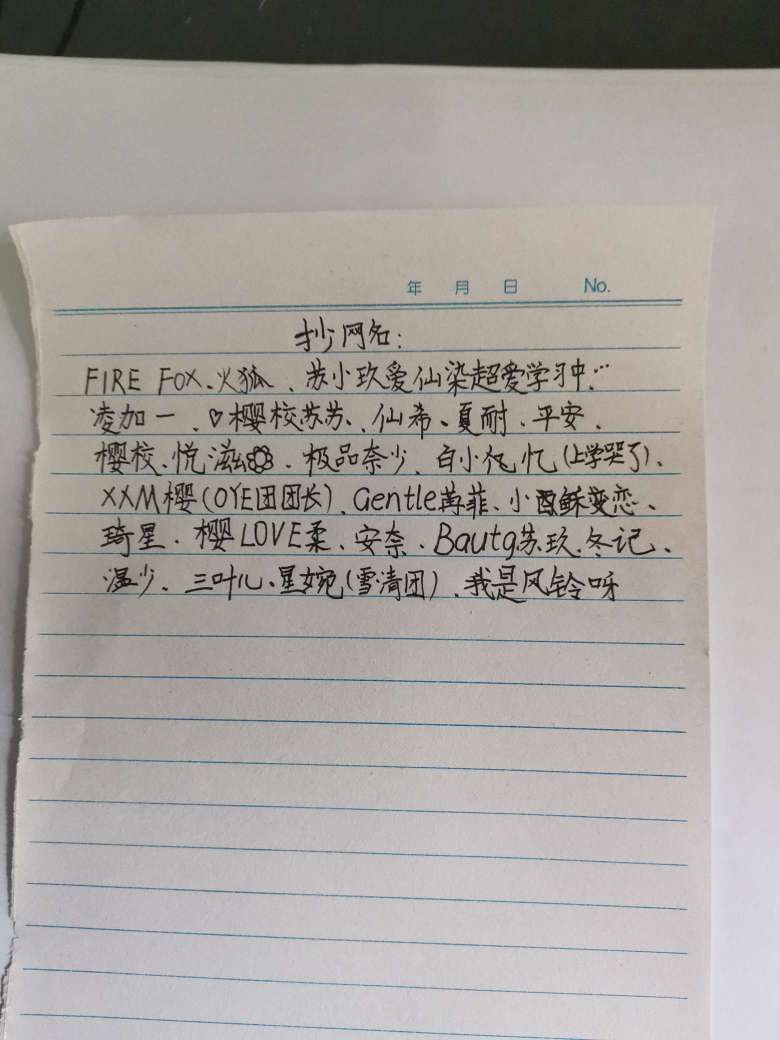 年 月 日 No.
抄网名:
FIRE FOX、火狐、苏小玖爱仙染超爱学习中…
凌加一、♡樱校苏苏、仙希、夏耐、平安、
樱校、悦滋、极品奈少、白小亿忆(上学哭了)、
XXM樱(OYE团团长)、Gentle苒菲、小酥变恋、
琦星、樱LOVE柔、安奈、Bautg苏玖、冬记、
温少、三叶儿、星婉(雪清团)、我是风铃呀